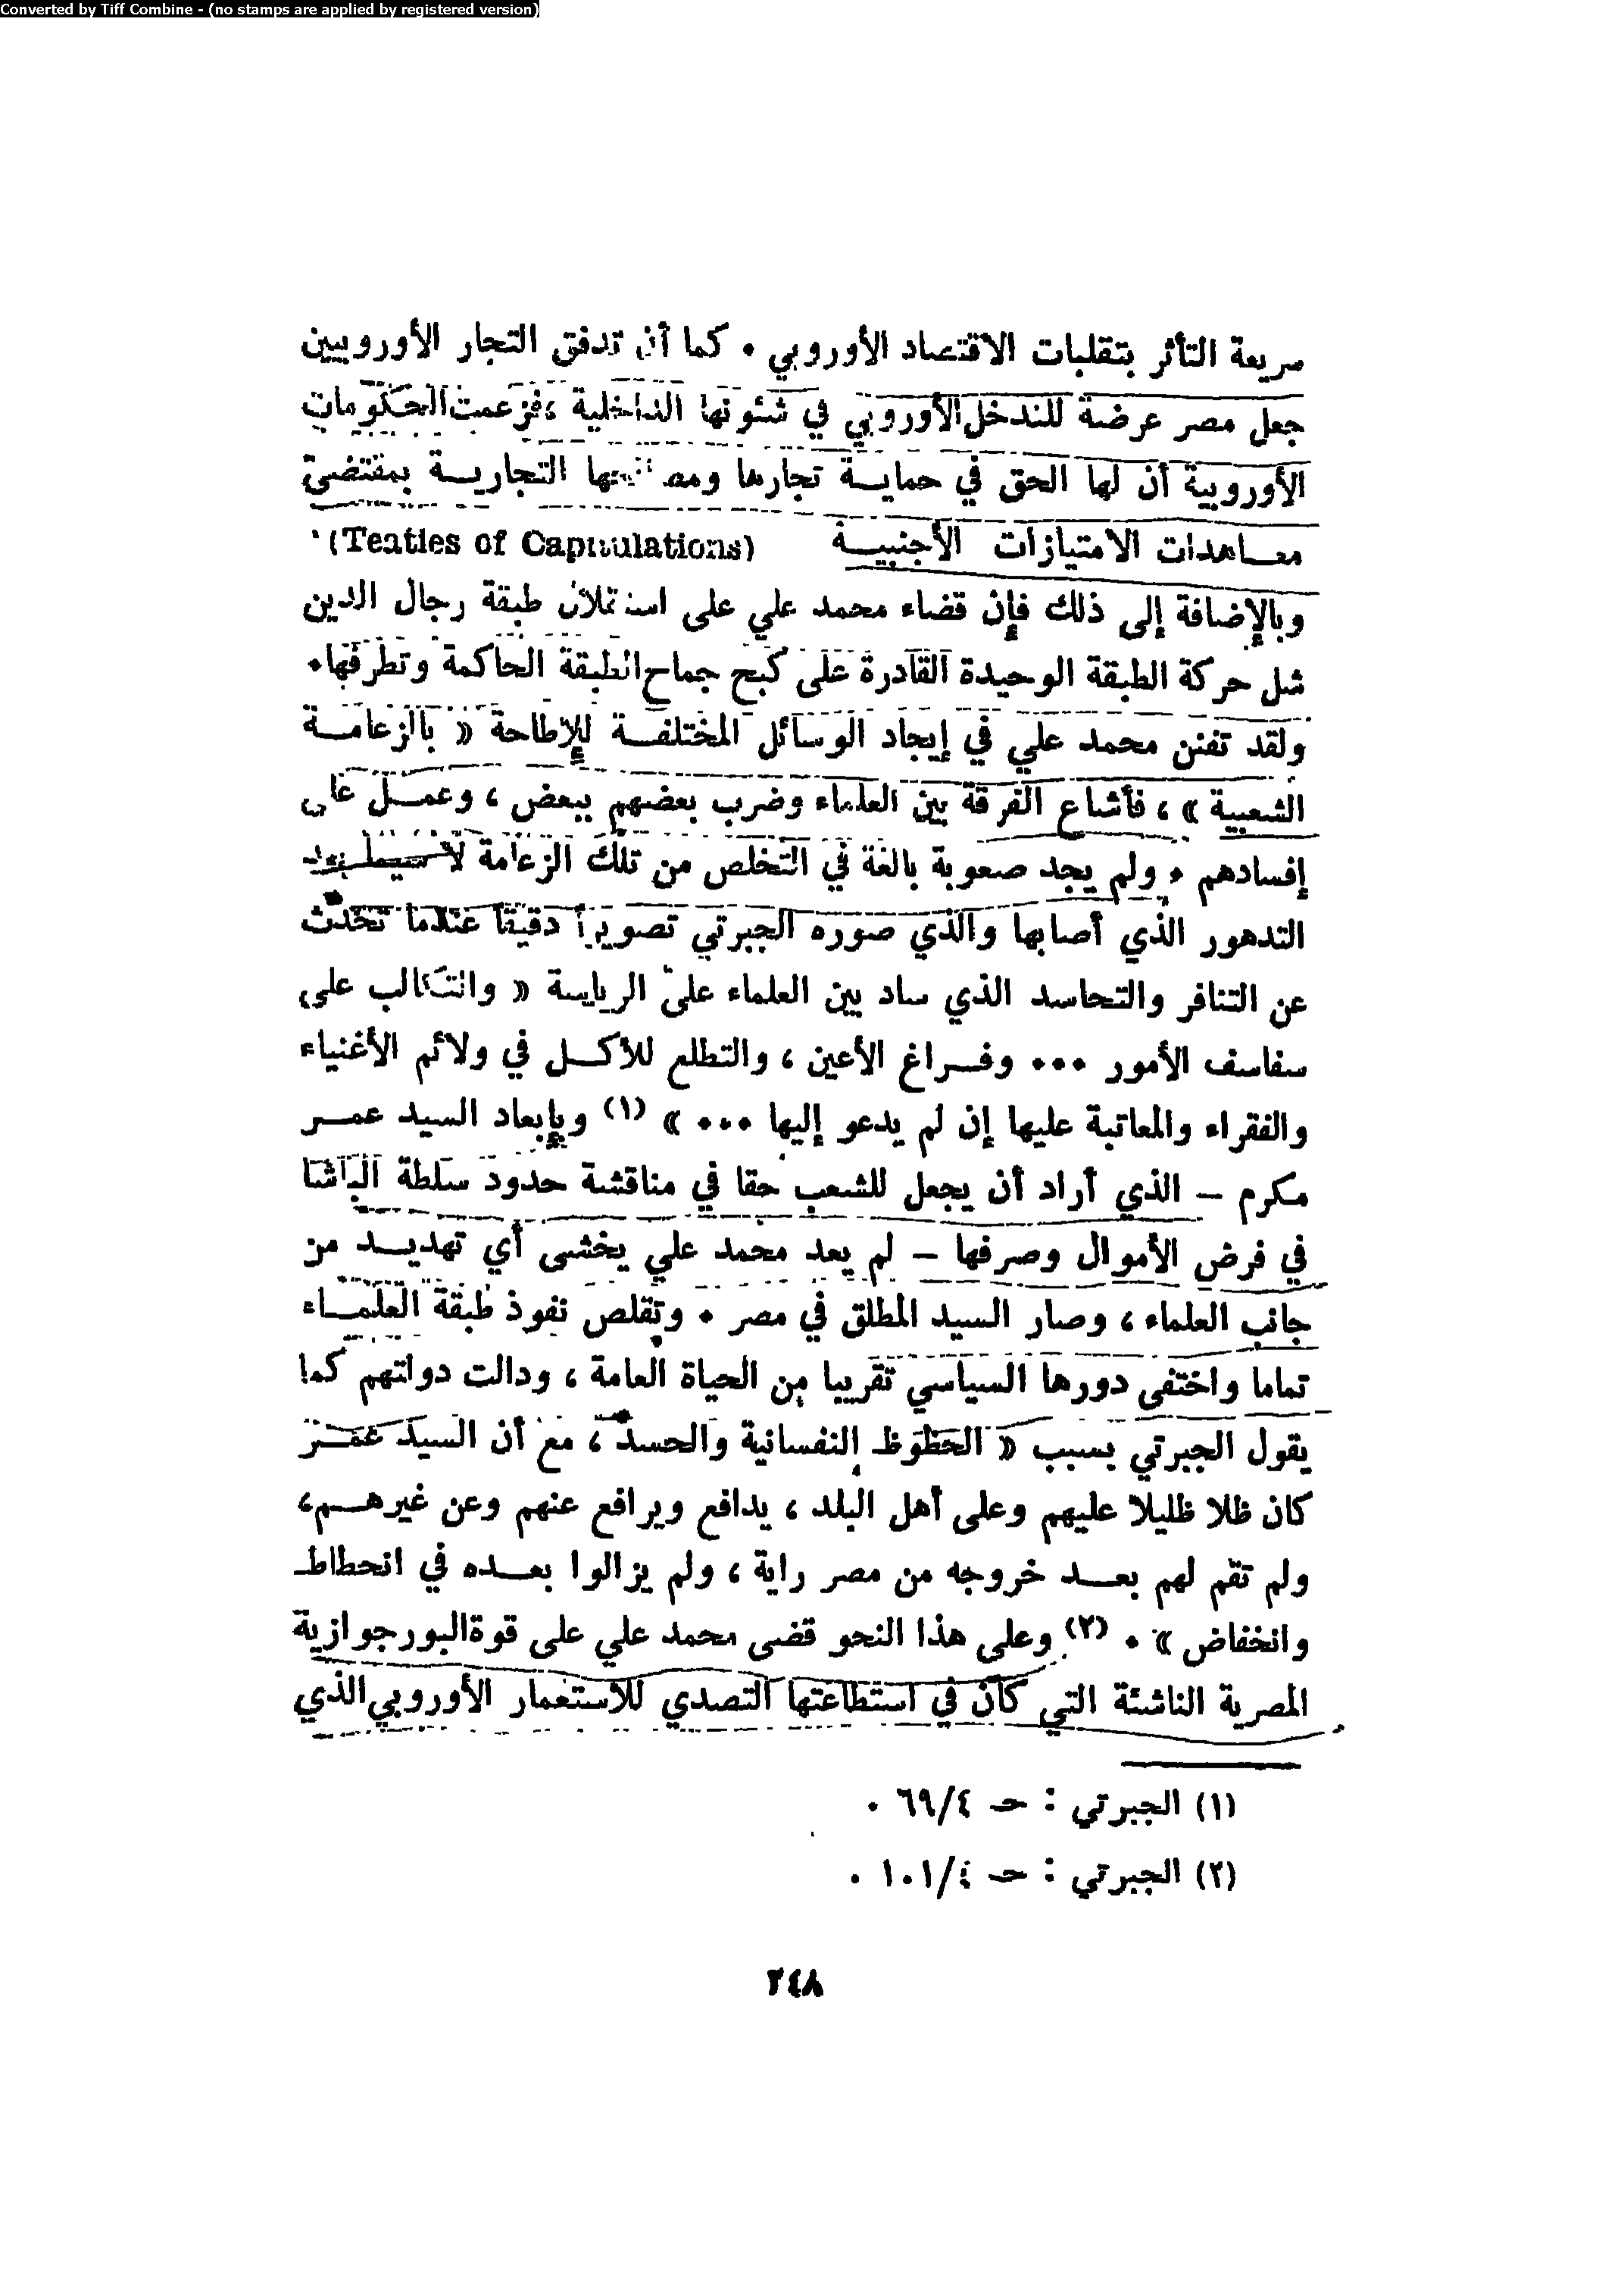 Converted by Tiff Combine - (no stamps are applied by registered version)
سريعة التأثر بتقلبات الاقتصاد الأوروبي . كما أن تدفق التجار الأوروبيين
جعل مصر عرضة للتدخل الأوروبي في شئونها الداخلية ، فزعمت الحكومات
الأوروبية أن لها الحق في حمايـــة تجارها التجاريـــة بمقتضى
معـــاهدات الامتيازات الأجنبيـــة (Teatles of Capitulations)
وبالإضافة إلى ذلك فإن قضاء محمد علي على استقلال طبقة رجال الدين
شل حركة الطبقة الوحيدة القادرة على كبح جماح الطبقة الحاكمة وتطرفها .
ولقد تفنن محمد علي في إيجاد الوسائل المختلفـــة للإطاحة « بالزعامـــة
الشعبية » ، فأشاع الفرقة بين العلماء وضرب بعضهم ببعض ، وعمـــل على
إفسادهم . ولم يجد صعوبة بالغة في التخلص من تلك الزعامة لا سيما بعد
التدهور الذي أصابها والذي صوره الجبرتي تصويرا دقيقا عندما تحدث
عن التنافر والتحاسد الذي ساد بين العلماء على الرياسة « والتكالب على
سفاسف الأمور ... وفـــراغ الأعين ، والتطلع للأكـــل في ولائم الأغنياء
والفقراء والمعاتبة عليها إن لم يدعو إليها ... » (١) وبإبعاد السيد عمـــر
مكرم – الذي أراد أن يجعل للشعب حقا في مناقشة حدود سلطة الباشا
في فرض الأموال وصرفها – لم يعد محمد علي يخشى أي تهديـــد من
جانب العلماء ، وصار السيد المطلق في مصر . وتقلص نفوذ طبقة العلمـــاء
تماما واختفى دورها السياسي تقريبا من الحياة العامة ، ودالت دولتهم كما
يقول الجبرتي بسبب « الحظوظ النفسانية والحسد ، مع أن السيد عمـــر
كان ظلا ظليلا عليهم وعلى أهل البلد ، يدافع ويرافع عنهم وعن غيرهـــم ،
ولم تقم لهم بعـــد خروجه من مصر راية ، ولم يزالوا بعـــده في انحطاط
وانخفاض » . (٢) وعلى هذا النحو قضى محمد علي على قوة البورجوازية
المصرية الناشئة التي كان في استطاعتها التصدي للاستعمار الأوروبي الذي
(١) الجبرتي : حـ ٦٩/٤ .
(٢) الجبرتي : حـ ١٠١/٤ .
٢٤٨